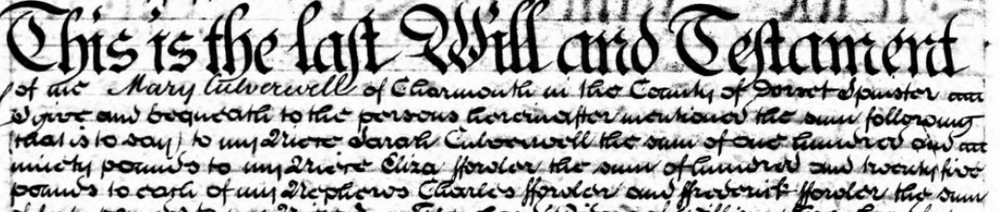 This is the last Will and Testament
of me Mary Culverwell of Charmouth in the County of Dorset Spinster
I give and bequeath to the persons hereinafter mentioned the sum following
(that is to say) to my Niece Sarah Culverwell the sum of one hundred and
ninety pounds to my Niece Eliza fforder the sum of hundred and twenty five
pounds to each of my Nephews Charles fforder and ffrederick fforder the sum